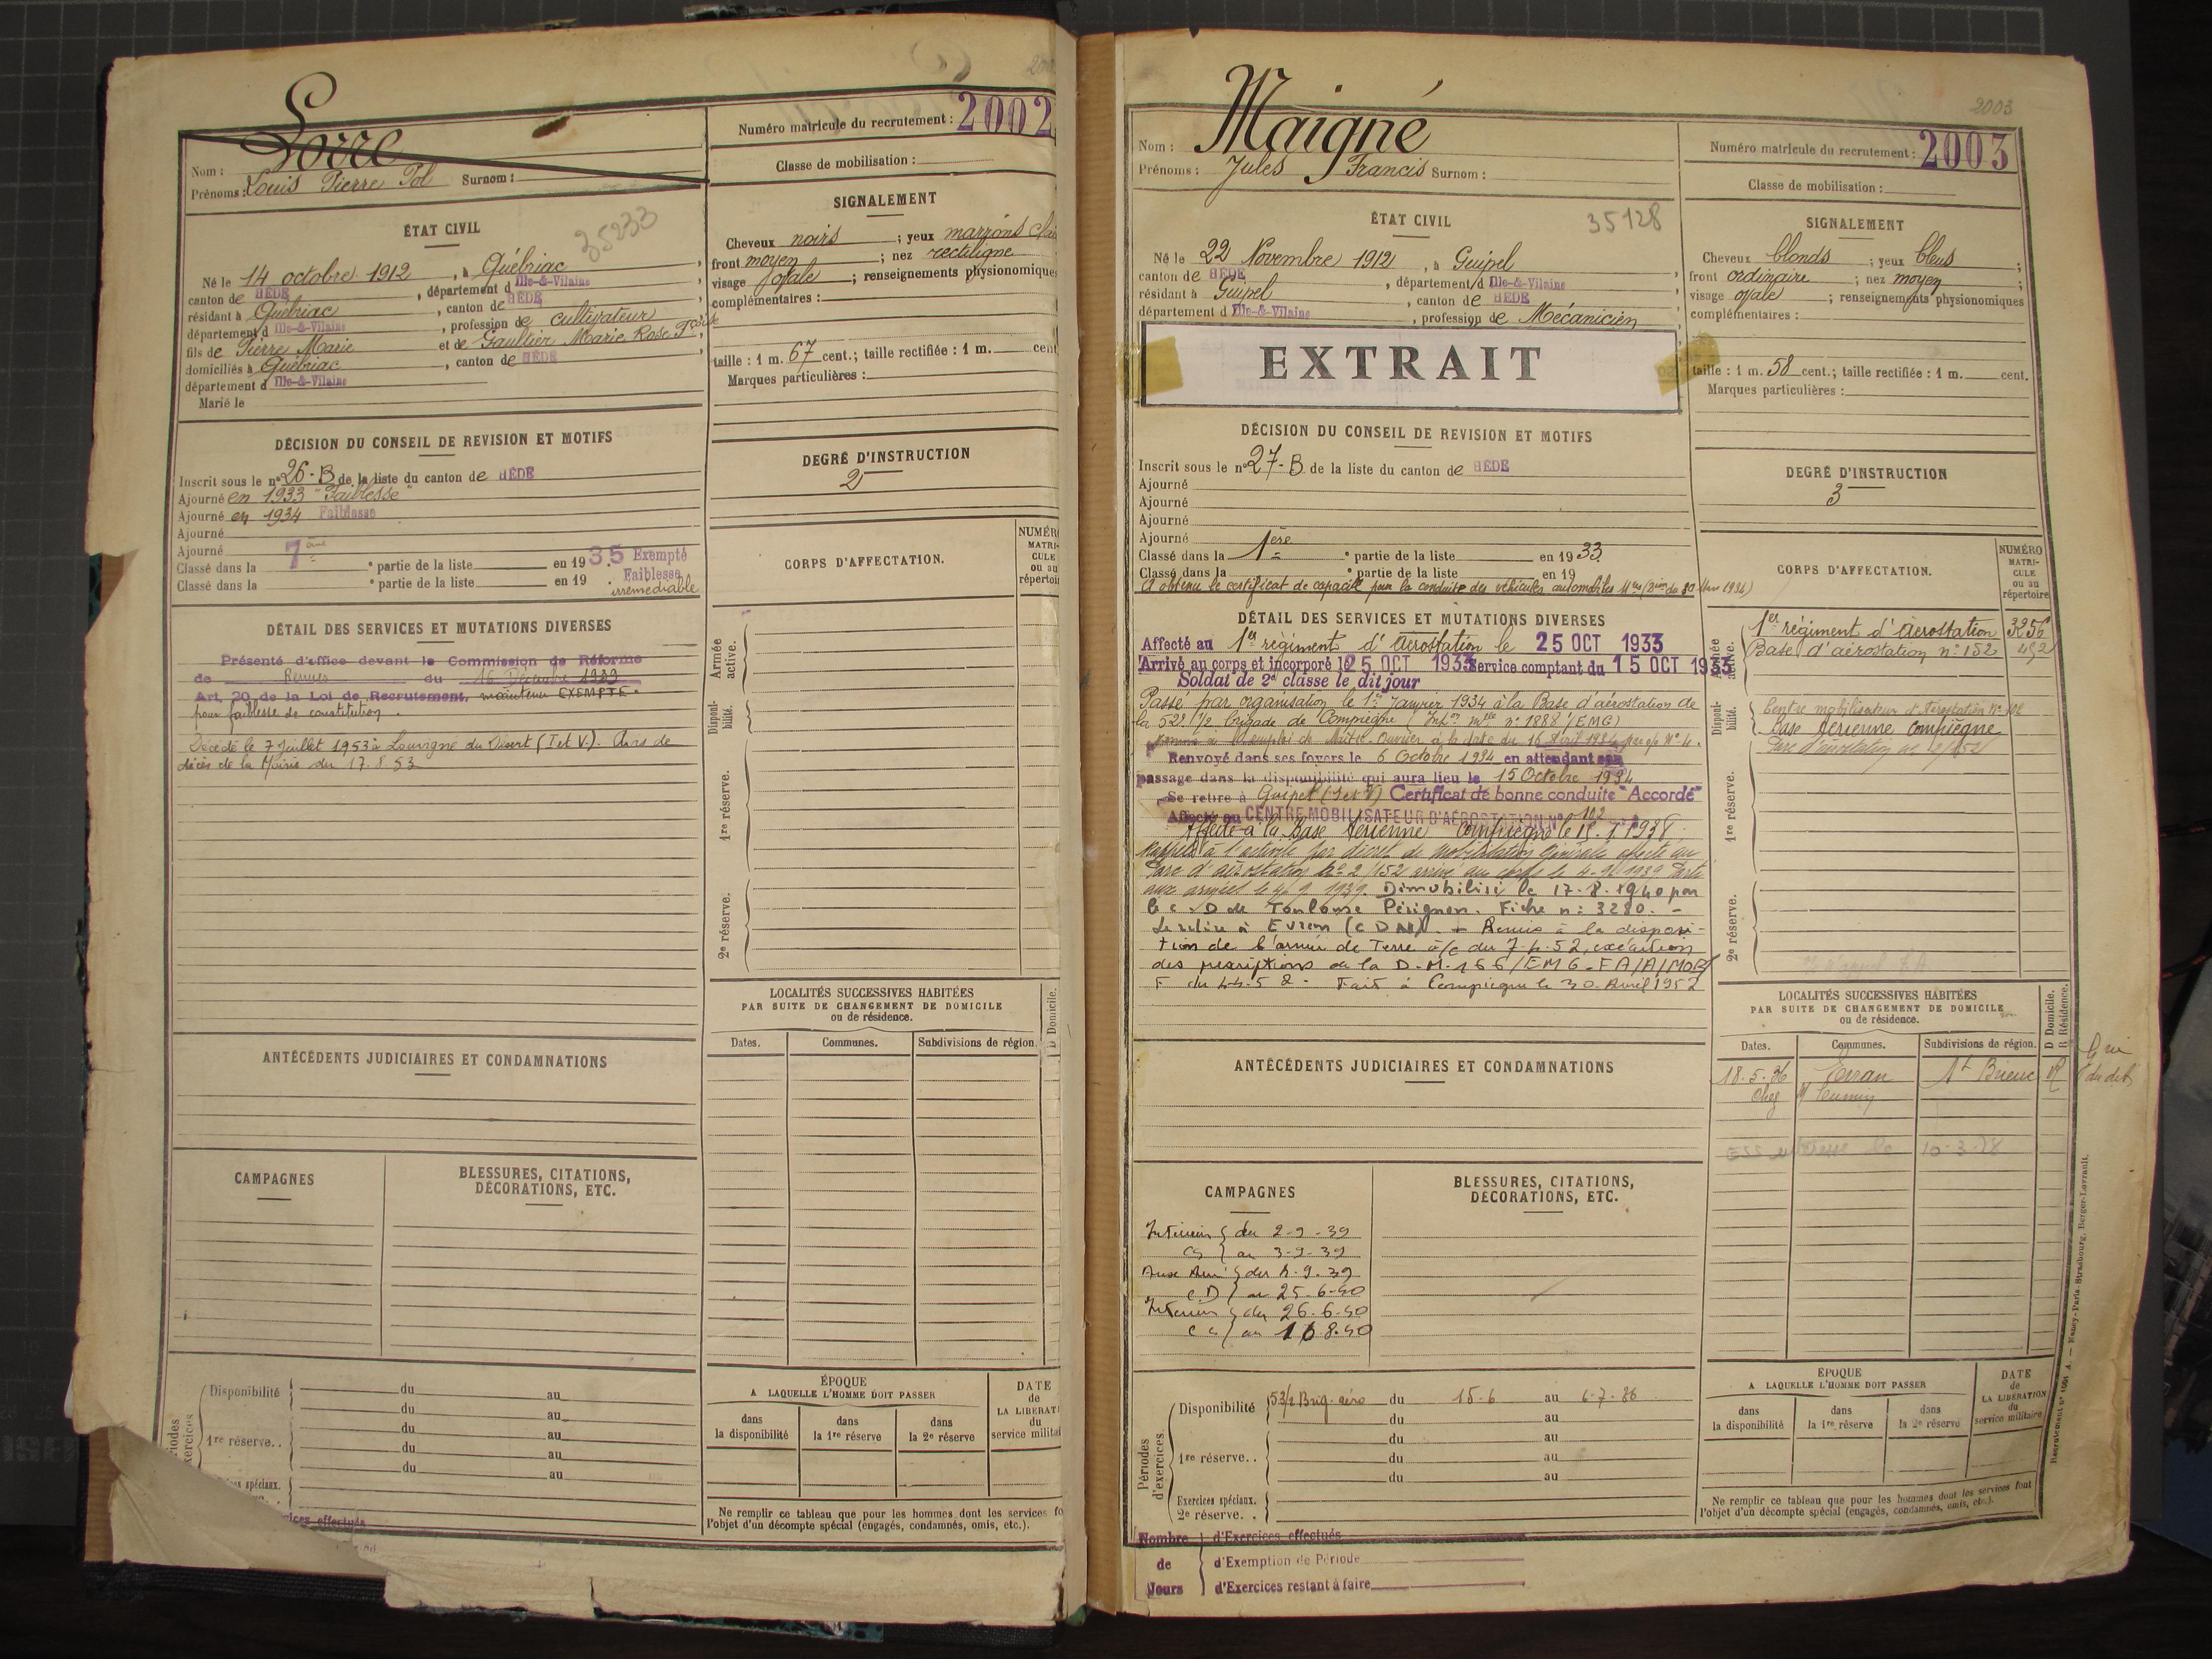 Nom : Lorre
Prénoms : Louis Pierre Pol Surnom :
Numéro matricule du recrutement : 2002
Classe de mobilisation :
ÉTAT CIVIL
35233
Né le 14 octobre 1912, à Québriac,
canton de HÉDÉ, département d Ille-&-Vilaine
résidant à Québriac, canton de HÉDÉ
département d Ille-&-Vilaine, profession de cultivateur
fils de Pierre Marie et de Gaultier Marie Rose
domiciliés à Québriac, canton de HÉDÉ
département d Ille-&-Vilaine
Marié le
SIGNALEMENT
Cheveux noirs ; yeux marrons
front moyen ; nez rectiligne
visage ovale ; renseignements physionomiques
complémentaires :
taille : 1 m. 67 cent.; taille rectifiée : 1 m. cent
Marques particulières :
DÉCISION DU CONSEIL DE REVISION ET MOTIFS
Inscrit sous le n° 26-B de la liste du canton de HÉDÉ
Ajourné en 1933 "Faiblesse"
Ajourné en 1934 Faiblesse
Ajourné
Ajourné
Classé dans la 7ème partie de la liste en 1935 Exempté
Classé dans la partie de la liste en 19 . Faiblesse
irrémédiable
DEGRÉ D'INSTRUCTION
2
CORPS D'AFFECTATION.
NUMÉRO
MATRI-
CULE
ou au
répertoire
DÉTAIL DES SERVICES ET MUTATIONS DIVERSES
Présenté d'office devant la Commission de Réforme
de Rennes du 16 Décembre 1939
Art. 20 de la Loi de Recrutement, maintenu EXEMPTÉ
pour faiblesse de constitution.
Décédé le 7 Juillet 1953 à Louvigné du Désert (I et V.). Avis de
décès de la Mairie du 17.8.53
Armée active.
Disponi-bilité.
1re réserve.
2e réserve.
LOCALITÉS SUCCESSIVES HABITÉES
PAR SUITE DE CHANGEMENT DE DOMICILE
ou de résidence.
D Domicile.
Dates. Communes. Subdivisions de région.
ANTÉCÉDENTS JUDICIAIRES ET CONDAMNATIONS
CAMPAGNES
BLESSURES, CITATIONS,
DÉCORATIONS, ETC.
Disponibilité du au
du au
1re réserve.. du au
du au
du au
ÉPOQUE
A LAQUELLE L'HOMME DOIT PASSER
dans la disponibilité
dans la 1re réserve
dans la 2e réserve
DATE
de
LA LIBÉRAT
du
service milita
Ne remplir ce tableau que pour les hommes dont les services fo
l'objet d'un décompte spécial (engagés, condamnés, omis, etc.).
2003
Nom : Maigné
Prénoms : Jules Francis Surnom :
Numéro matricule du recrutement : 2003
Classe de mobilisation :
ÉTAT CIVIL
35128
Né le 22 Novembre 1912, à Guipel
canton de HÉDÉ, département d Ille-&-Vilaine
résidant à Guipel, canton de HÉDÉ
département d Ille-&-Vilaine, profession de Mécanicien
EXTRAIT
SIGNALEMENT
Cheveux blonds ; yeux bleus ;
front ordinaire ; nez moyen ;
visage ovale ; renseignements physionomiques
complémentaires :
taille : 1 m. 58 cent.; taille rectifiée : 1 m. cent.
Marques particulières :
DÉCISION DU CONSEIL DE REVISION ET MOTIFS
Inscrit sous le n° 27-B de la liste du canton de HÉDÉ
Ajourné
Ajourné
Ajourné
Ajourné
Classé dans la 1ère partie de la liste en 1933
Classé dans la partie de la liste en 19
A obtenu le certificat de capacité pour la conduite des véhicules automobiles
DEGRÉ D'INSTRUCTION
3
CORPS D'AFFECTATION.
NUMÉRO
MATRI-
CULE
ou au
répertoire
1er régiment d'aérostation 3256
Base d'aérostation n° 152 492
Centre mobilisateur d'Aérostation N° 102
Base Aérienne Compiègne
Parc d'aérostation n° 2/152
DÉTAIL DES SERVICES ET MUTATIONS DIVERSES
Affecté au 1er régiment d'Aérostation le 25 OCT 1933
Arrivé au corps et incorporé le 25 OCT 1933 Service comptant du 15 OCT 1933
Soldat de 2e classe le dit jour
Passé par organisation le 1er Janvier 1934 à la Base d'aérostation de
la 52e 1/2 brigade de Compiègne ( n° 1888 / EMG)
à l'emploi de Ouvrier à la date du 16 Avril 1934
Renvoyé dans ses foyers le 6 Octobre 1934 en attendant son
passage dans la disponibilité qui aura lieu le 15 Octobre 1934
Se retire à Guipel (I et V) Certificat de bonne conduite "Accordé"
Affecté au CENTRE MOBILISATEUR D'AÉROSTATION N° 102
Affecté à la Base Aérienne Compiègne le 1938
Rappelé à l'activité par décret de mobilisation générale affecté au
Parc d'aérostation n° 2/152 arrivé au corps le 4-9-1939 Parti
aux armées le 4.9.1939. Démobilisé le 17.8.1940 par
le C.D de Toulouse Pérignon. Fiche n: 3280.-
Se retire à Evran (C D N). - Remis à la disposi-
tion de l'armée de Terre à/c du 7-4-52, exécution
des prescriptions de la D.M.166/EMG-FA/A/MOB/
F du 4-4-52 - Fait à Compiègne le 30 Avril 1952
Armée active.
Disponi-bilité.
1re réserve.
2e réserve.
LOCALITÉS SUCCESSIVES HABITÉES
PAR SUITE DE CHANGEMENT DE DOMICILE
ou de résidence.
D Domicile.
R Résidence.
Dates. Communes. Subdivisions de région.
18.5.36 Evran St Brieuc R
chez M
10-3-38
ANTÉCÉDENTS JUDICIAIRES ET CONDAMNATIONS
CAMPAGNES
Intérieur du 2-9-39
CS au 3-9-39
Aux Arm du 4.9.39
C.D au 25-6-40
Intérieur du 26.6.40
CS au 16 8.40
BLESSURES, CITATIONS,
DÉCORATIONS, ETC.
Périodes d'exercices.
Disponibilité 53/2 Brig. aéro du 15-6 au 6-7-36
du au
1re réserve.. du au
du au
du au
Exercices spéciaux.
2e réserve. .
ÉPOQUE
A LAQUELLE L'HOMME DOIT PASSER
dans la disponibilité
dans la 1re réserve
dans la 2e réserve
DATE
de
LA LIBÉRATION
du
service militaire
Ne remplir ce tableau que pour les hommes dont les services font
l'objet d'un décompte spécial (engagés, condamnés, omis, etc.).
Nombre de Jours
d'Exercices effectués
d'Exemption de Période
d'Exercices restant à faire
Nancy-Paris-Strasbourg, Berger-Levrault.